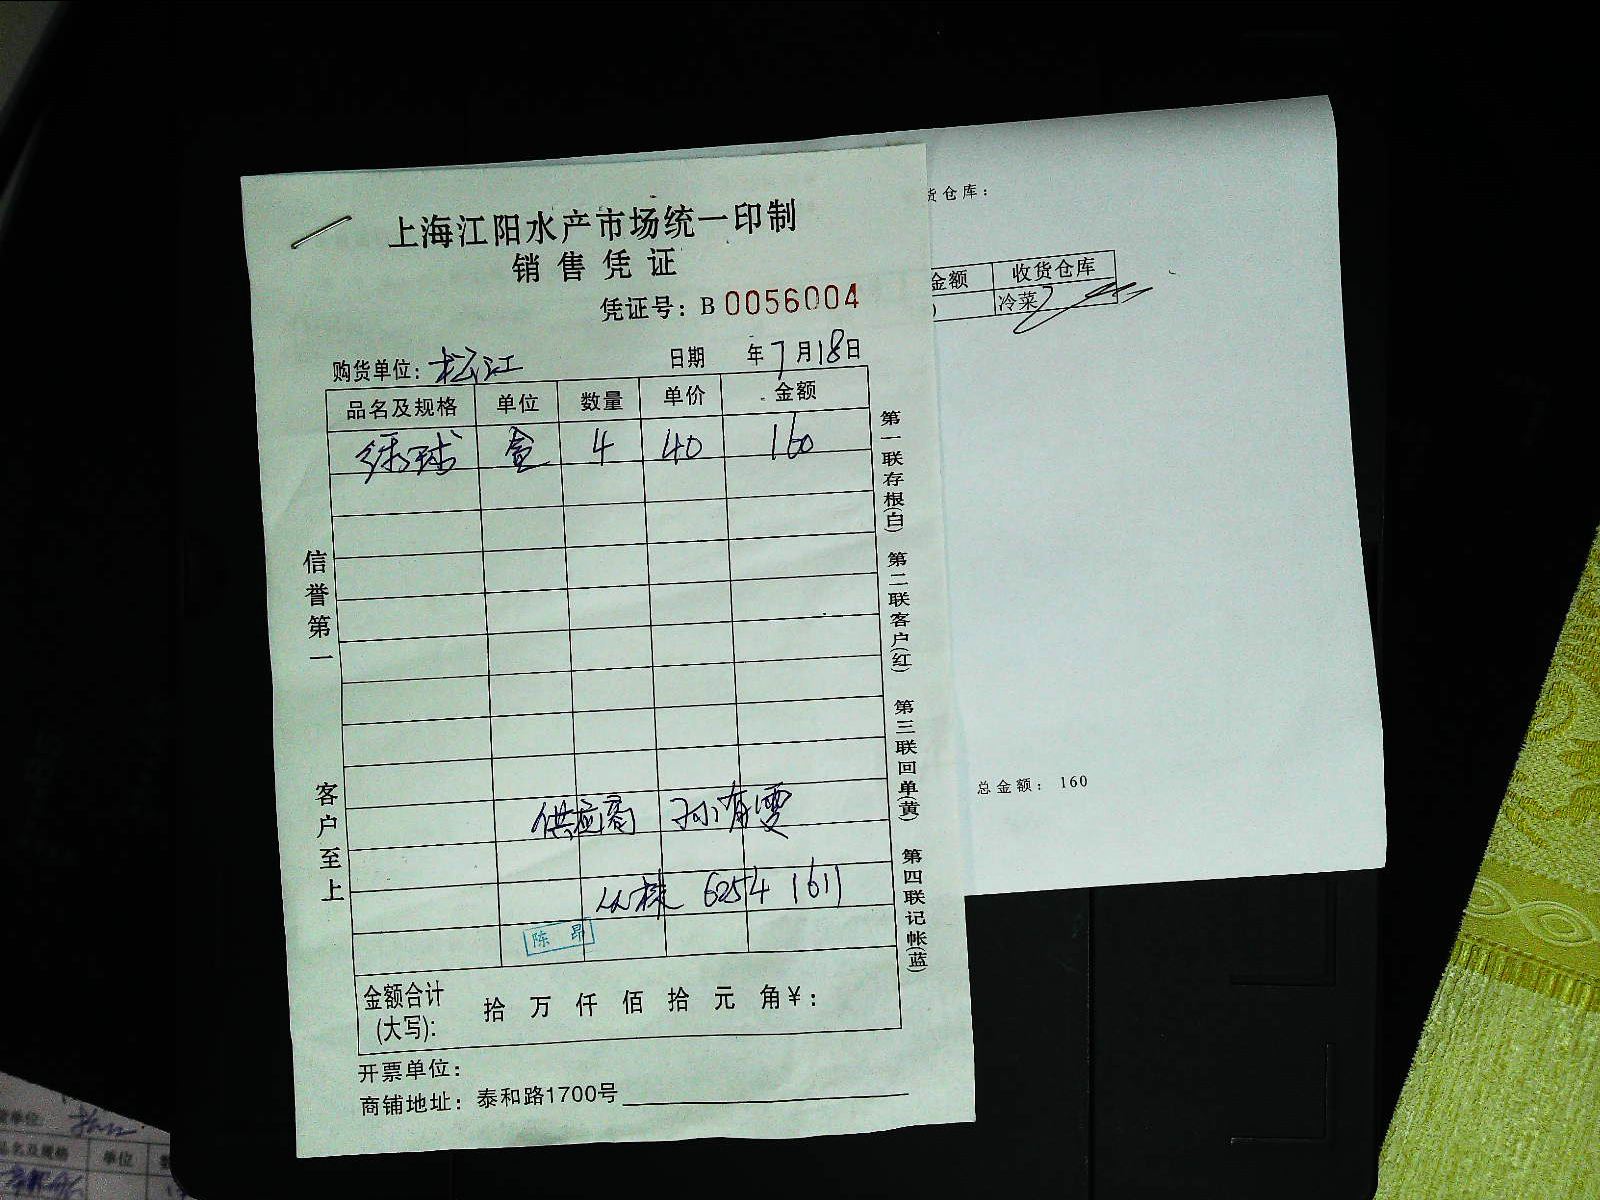 上海江阳水产市场统一印制
销售凭证
凭证号：B 0056004
购货单位：松江 日期 年7月18日
品名及规格 单位 数量 单价 金额
绣球 盒 4 40 160
第一联存根(白) 第二联客户(红) 第三联回单(黄) 第四联记帐(蓝)
信誉第一 客户至上
供应商
6254 1611
陈昂
金额合计(大写)： 拾万仟佰拾元角¥：
开票单位：
商铺地址：泰和路1700号
货仓库：
金额 收货仓库
冷菜
总金额： 160
单位：
品名及规格 单位